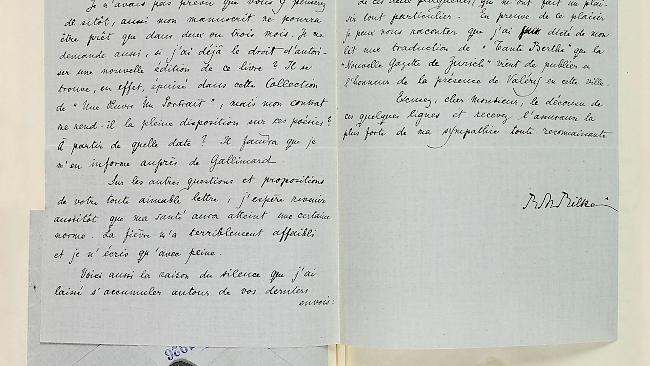 Je n'avais pas prévu que vous y pensiez
de sitôt, aussi mon manuscrit ne pourra
être prêt que dans deux ou trois mois. Je me
demande aussi, si j'ai déjà le droit d'autori-
ser une nouvelle édition de ce livre? Il se
trouve, en effet, épuisé dans cette Collection
de "Une Œuvre Un Portrait", mais mon contrat
me rend-il la pleine disposition sur ces poésies?
À partir de quelle date? Il faudra que je
m'en informe auprès de Gallimard
Sur les autres questions et propositions
de votre toute aimable lettre, j'espère revenir
aussitôt que ma santé aura atteint une certaine
norme. La fièvre m'a terriblement affaibli
et je n'écris qu'avec peine.
Voici aussi la raison du silence que j'ai
laissé s'accumuler autour de vos derniers
envois:
de ces deux plaquettes, qui me ont fait un plai-
sir tout particulier. En preuve de ce plaisir
je peux vous raconter que j'ai dicté de mon
lit une traduction de "Tante Berthe" que la
"Nouvelle Gazette de Zurich" vient de publier en
l'honneur de la présence de Valéry en cette ville.
Excusez, cher Monsieur, le décousu de
ces quelques lignes et recevez l'assurance la
plus forte de ma sympathie toute reconnaissante
R. M. Rilke